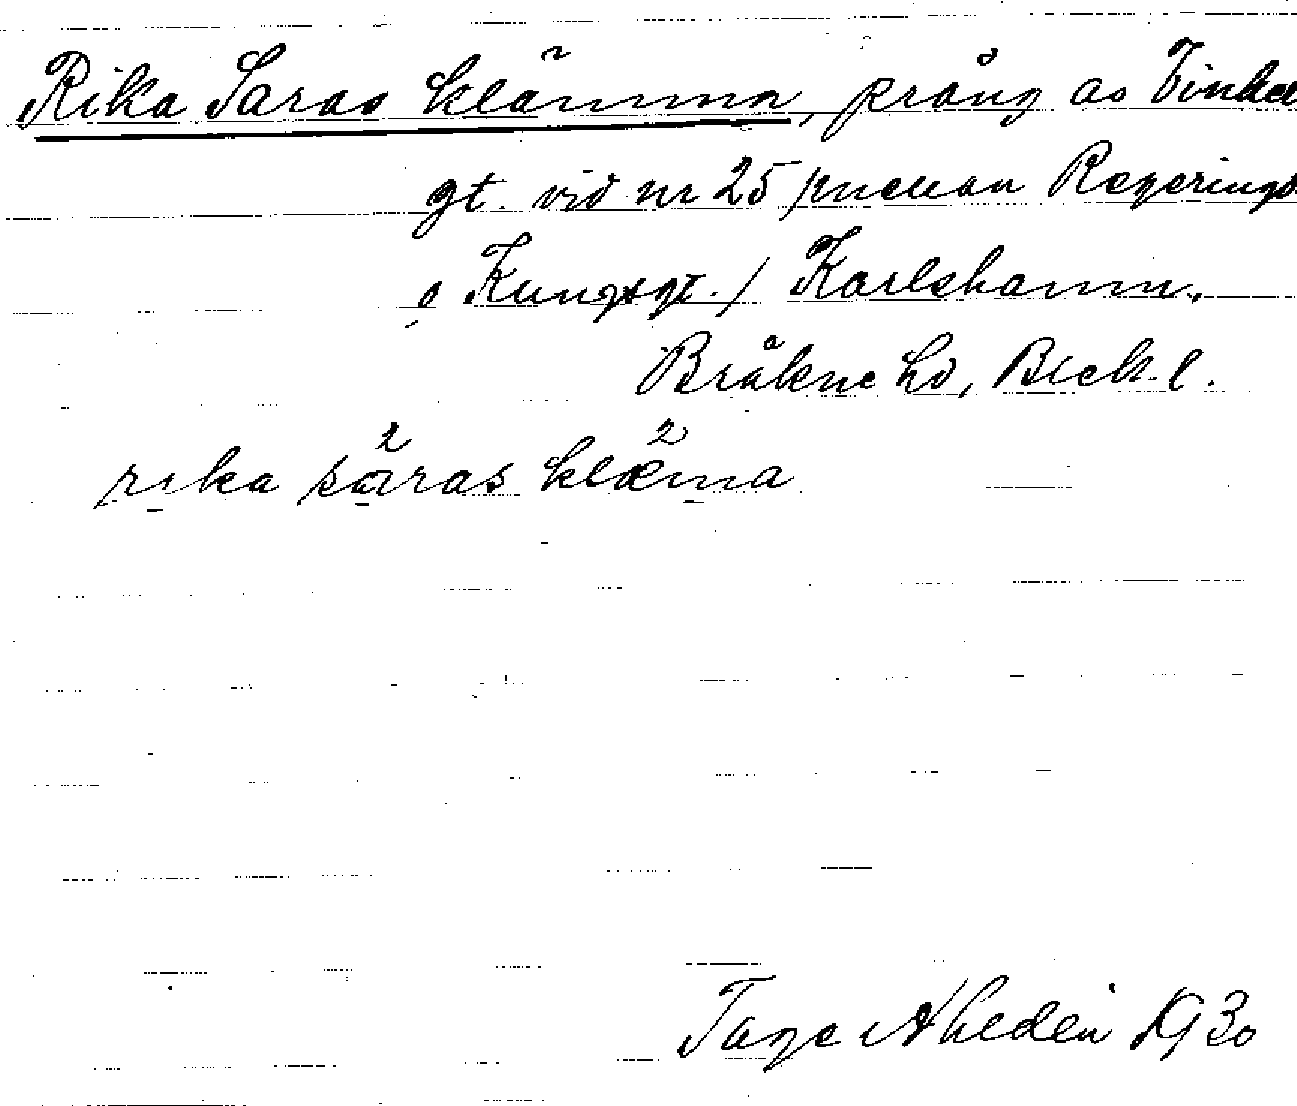 Rika Saras klämma, präng as Vinkel
gt. vid nr 25 /mellan Regerings
o Kungsgt./ Karlshamn.
Bräkne hd, Blek. l.
rika saras kläma
Tage Ahldén 1930